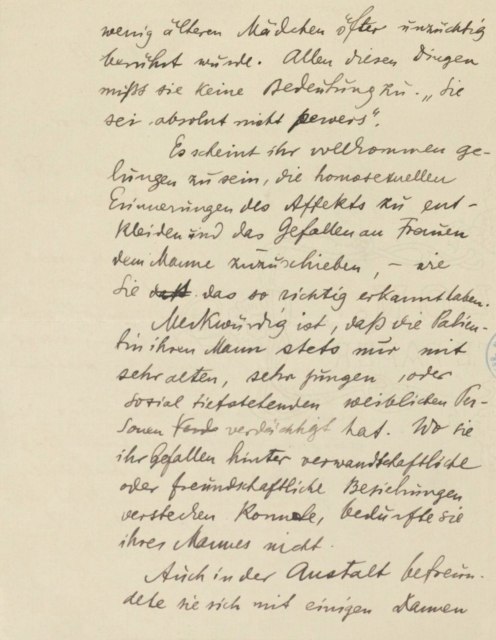 wenig älteren Mädchen öfter unzüchtig
berührt wurde. Allen diesen Dingen
mißt sie keine Bedeutung zu. „Sie
sei absolut nicht pervers“.
Es scheint ihr vollkommen ge-
lungen zu sein, die homosexuellen
Erinnerungen des Affekts zu ent-
kleiden und das Gefallen an Frauen
dem Manne zuzuschieben, – wie
Sie das so richtig erkannt haben.
Merkwürdig ist, daß die Patien-
tin ihren Mann stets nur mit
sehr alten, sehr jungen, oder
sozial tiefstehenden weiblichen Per-
sonen verdächtigt hat. Wo sie
ihr Gefallen hinter verwandtschaftliche
oder freundschaftliche Beziehungen
verstecken konnte, bedurfte sie
ihres Mannes nicht.
Auch in der Anstalt befreun-
dete sie sich mit einigen Damen